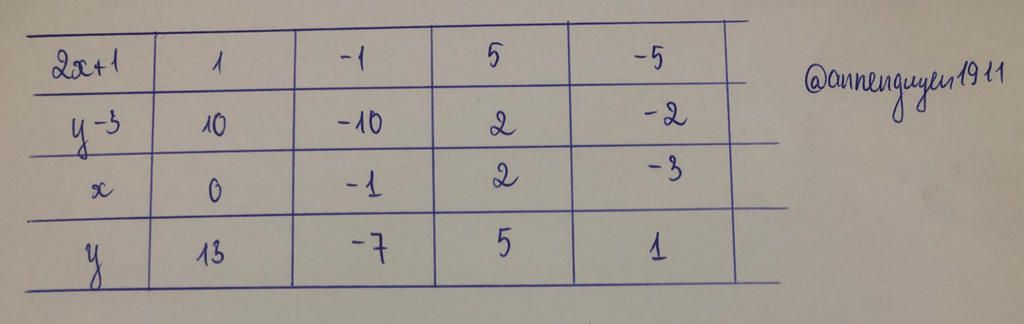 2x+1 1 -1 5 -5
y-3 10 -10 2 -2
x 0 -1 2 -3
y 13 -7 5 1
@annenguyen1911